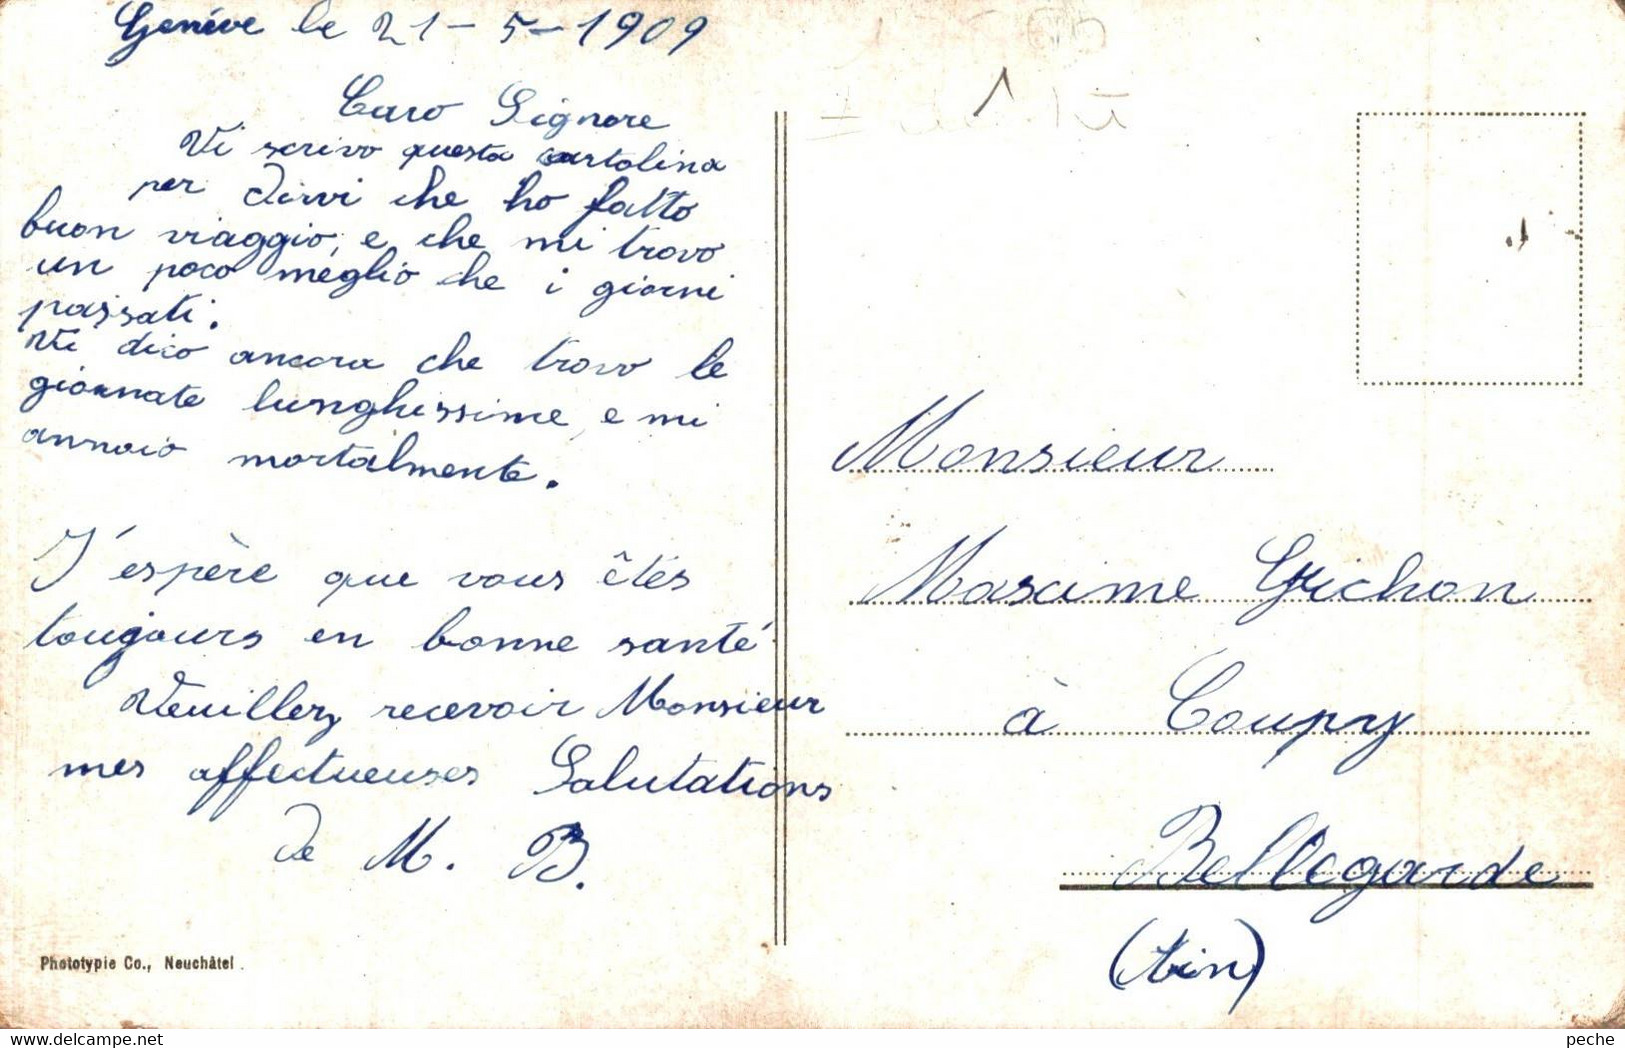 Genève le 21-5-1909
Caro Signore
Vi scrivo questa cartolina
per dirvi che ho fatto
buon viaggio, e che mi trovo
un poco meglio che i giorni
passati.
Vi dico ancora che trovo le
giornate lunghissime, e mi
annoio mortalmente.
J'espère que vous êtes
toujours en bonne santé
Veuillez recevoir Monsieur
mes affectueuses Salutations
de M. B.
Phototypie Co., Neuchâtel
Monsieur
Maxime Guichon
à Coupy
Bellegarde
(Ain)
peche